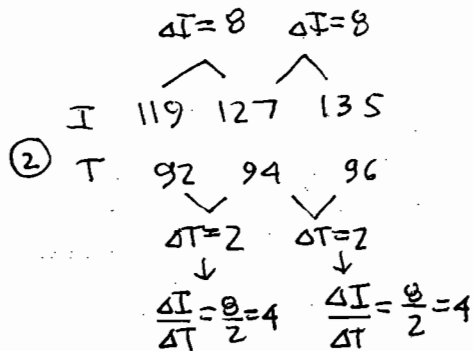 ΔI = 8 ΔI = 8
I 119 127 135
②
T 92 94 96
ΔT = 2 ΔT = 2
↓ ↓
ΔI/ΔT = 8/2 = 4 ΔI/ΔT = 8/2 = 4